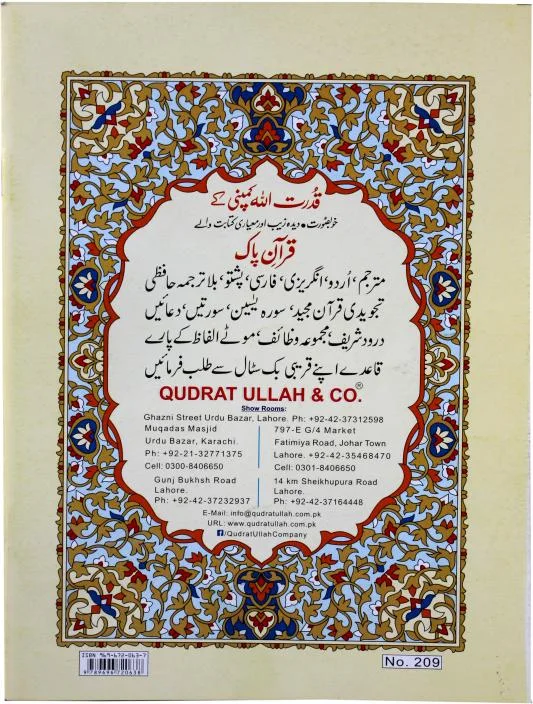 قدرت اللہ کمپنی کے
خوبصورت • دیدہ زیب اور معیاری کتابت والے
قرآن پاک
مترجم، اُردو، انگریزی، فارسی، پشتو، بلا ترجمہ حافظی
تجویدی قرآن مجید، سورہ یٰسین، سورتیں، دعائیں
درود شریف، مجموعہ وظائف، موٹے الفاظ کے پارے
قاعدے اپنے قریبی بک سٹال سے طلب فرمائیں
QUDRAT ULLAH & CO.®
Show Rooms:
Ghazni Street Urdu Bazar, Lahore. Ph: +92-42-37312598
Muqadas Masjid
Urdu Bazar, Karachi.
Ph: +92-21-32771375
Cell: 0300-8406650
797-E G/4 Market
Fatimiya Road, Johar Town
Lahore. +92-42-35468470
Cell: 0301-8406650
Gunj Bukhsh Road
Lahore.
Ph: +92-42-37232937
14 km Sheikhupura Road
Lahore.
Ph: +92-42-37164448
E-Mail: info@qudratullah.com.pk
URL: www.qudratullah.com.pk
/QudratUllahCompany
ISBN 969-672-063-7
9 789696 720638
No. 209